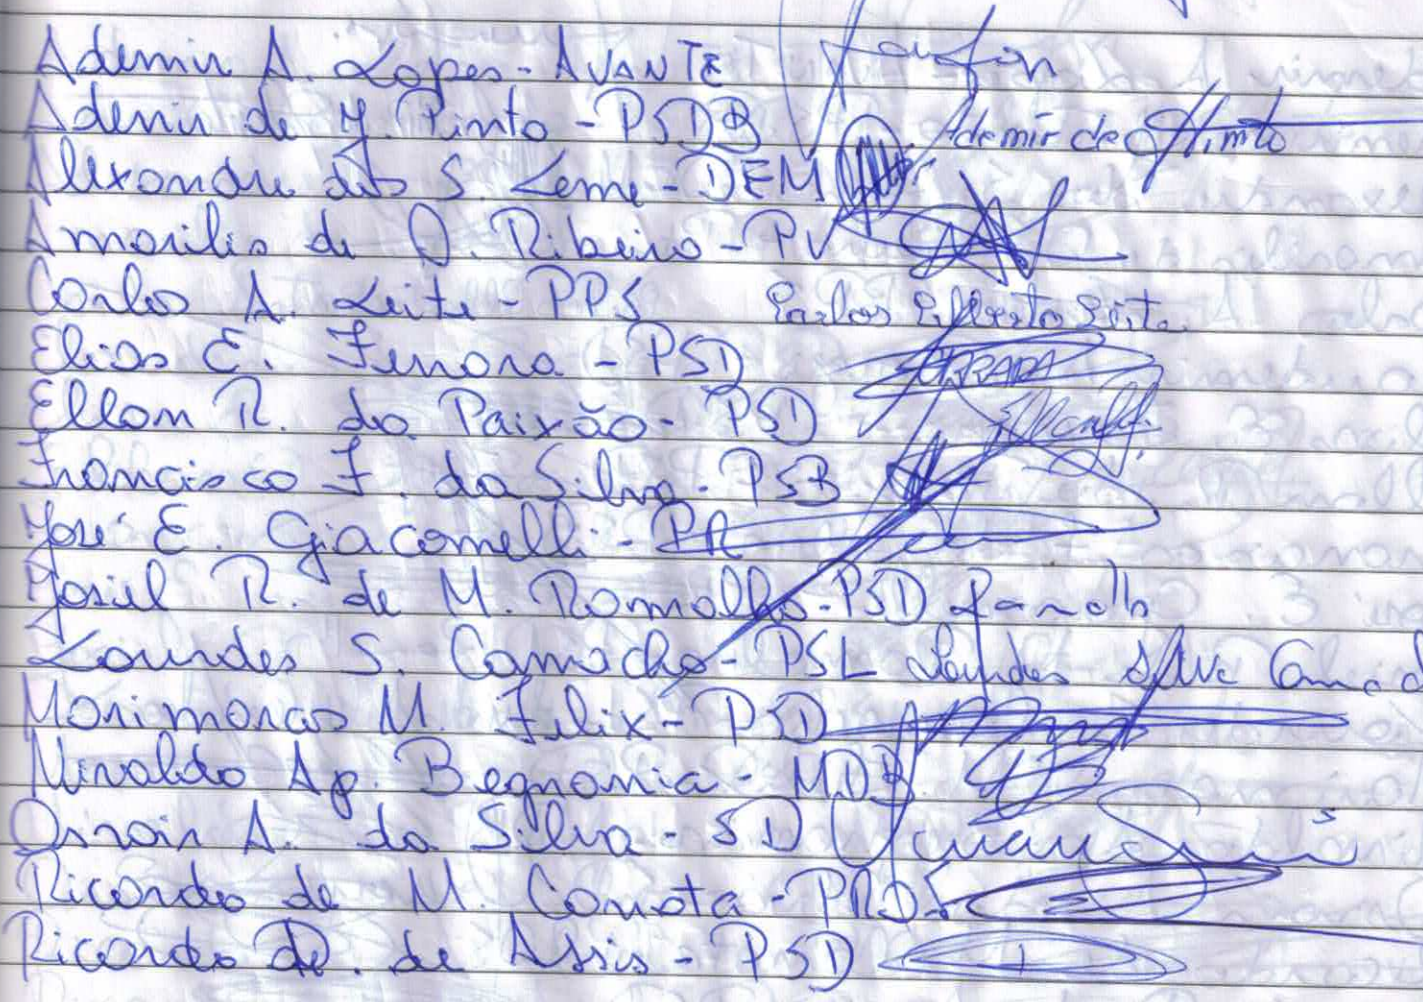 Ademir A. Lopes - AVANTE
Ademir de J. Pinto - PSDB Ademir de J Pinto
Alexandre dos S. Leme - DEM
Amarilis de O. Ribeiro - PV
Carlos A. Leite - PPS Carlos Alberto Leite
Elias E. Ferrara - PSD
Ellan R. da Paixão - PSD
Francisco F. da Silva - PSB
José E. Giacomelli - PR
Josiel R. de M. Ramalho - PSD
Lourdes S. Camacho - PSL Lourdes Silva
Marimarcos M. Felix - PSD
Nivaldo Ap. Begnania - MDB
Osnair A. da Silva - SD
Ricardo de M. Canata - PRDS
Ricardo D. de Assis - PSD